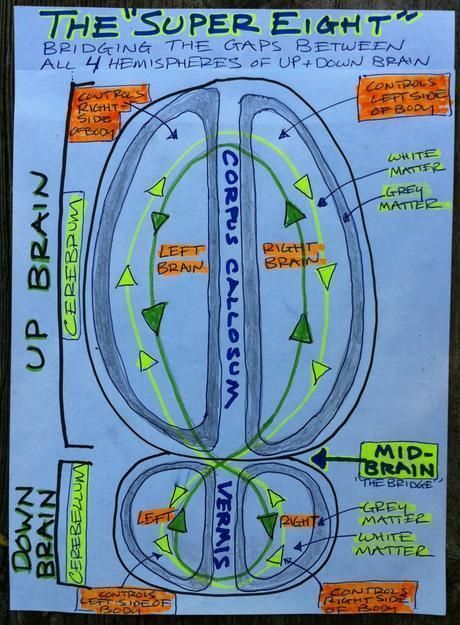 THE "SUPER EIGHT"
BRIDGING THE GAPS BETWEEN
ALL 4 HEMISPHERES OF UP + DOWN BRAIN
CONTROLS
RIGHT-
SIDE
OF BODY
CONTROLS
LEFT SIDE
OF BODY
WHITE
MATTER
GREY
MATTER
UP BRAIN
CEREBRUM
LEFT
BRAIN
CORPUS CALLOSUM
RIGHT
BRAIN
MID-
BRAIN
"THE BRIDGE"
DOWN
BRAIN
CEREBELLUM
LEFT
VERMIS
RIGHT
GREY
MATTER
WHITE
MATTER
CONTROLS
LEFT SIDE OF
BODY
CONTROLS
RIGHT SIDE
OF BODY